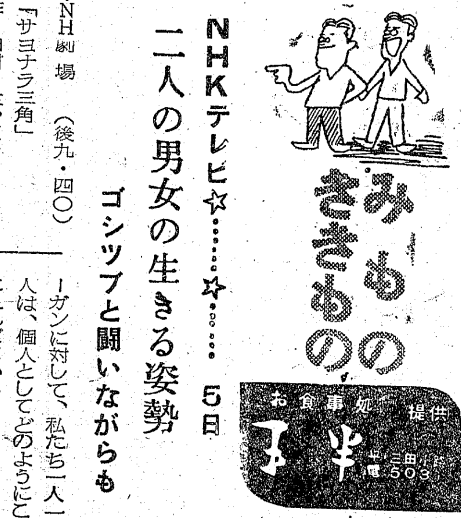 みもの
ききもの
お食事処
提供
半
三田
503
NHKテレビ☆……☆…… 5日
二人の男女の生きる姿勢
ゴシップと闘いながらも
NHK劇場 (後九・四〇)
「サヨナラ三角」
ーガンに対して、私たち一人一
人は、個人としてどのようにこ